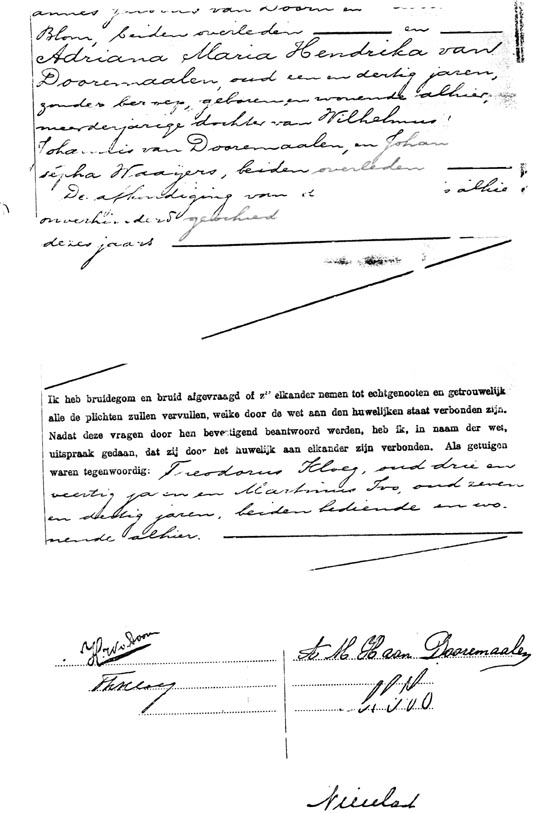 van Doorn en
Blom, beiden overleden en
Adriana Maria Hendrika van
Dooremaalen, oud een en dertig jaren,
zonder beroep, geboren en wonende alhier,
meerderjarige dochter van Wilhelmus
Johannis van Dooremaalen, en Johan
sepha Waaijers, beiden overleden
De afkondiging van alhie
onverhinderd geschied
dezes jaars
Ik heb bruidegom en bruid afgevraagd of z" elkander nemen tot echtgenooten en getrouwelijk
alle de plichten zullen vervullen, welke door de wet aan den huwelijken staat verbonden zijn.
Nadat deze vragen door hen bevestigend beantwoord werden, heb ik, in naam der wet,
uitspraak gedaan, dat zij door het huwelijk aan elkander zijn verbonden. Als getuigen
waren tegenwoordig: Treodorus Kloeg, oud drie en
veertig jaren en Martinus Ivo, oud zeven
en dertig jaren, beiden bediende en wo-
nende alhier.
HvDoorn
A M H van Dooremaalen
ThKloeg